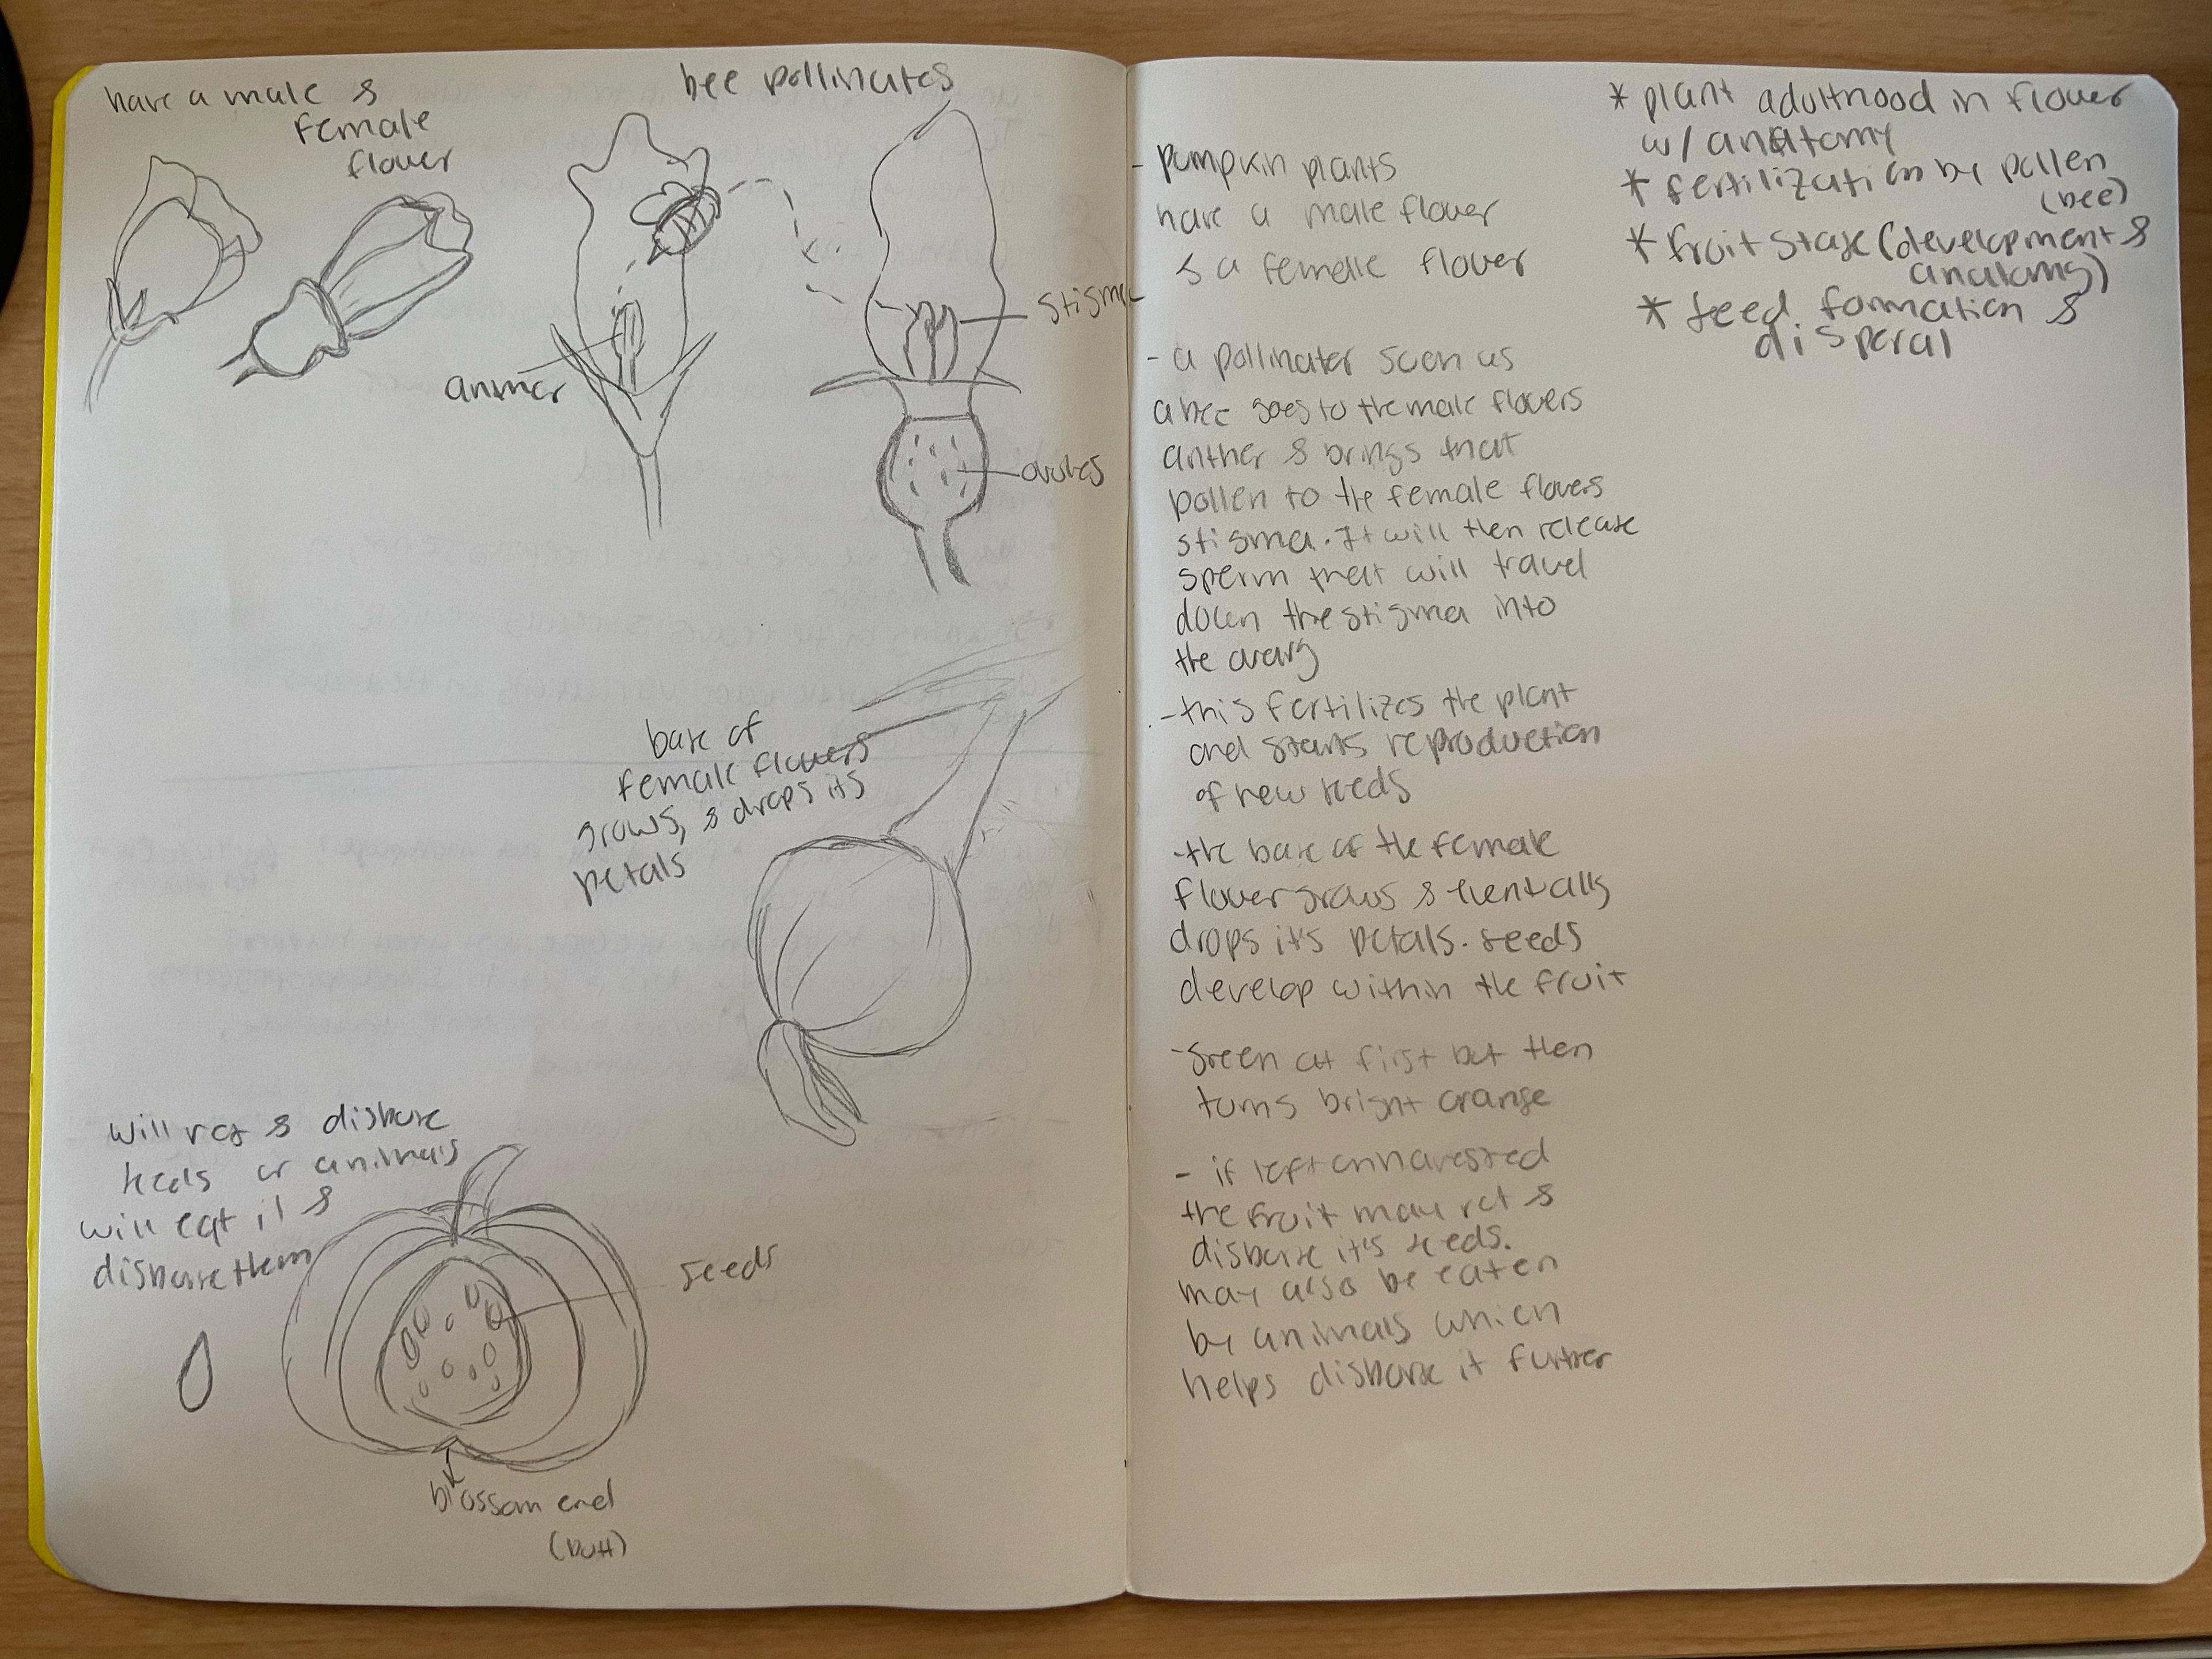 have a male &
female
flower
bee pollinates
anther
stigma
ovules
base of
female flowers
grows, & drops its
petals
will rot & disburse
seeds or animals
will eat it &
disburse them
seeds
blossom end
(butt)
- pumpkin plants
have a male flower
& a female flower
- a pollinater such as
a bee goes to the male flowers
anther & brings that
pollen to the female flowers
stigma. It will then release
sperm that will travel
down the stigma into
the ovary
- this fertilizes the plant
and starts reproduction
of new seeds
- the base of the female
flower grows & eventually
drops it's petals. seeds
develop within the fruit
- green at first but then
turns bright orange
- if left unharvested
the fruit may rot &
disburse it's seeds.
may also be eaten
by animals which
helps disburse it further
* plant adulthood in flower
w/ anatomy
* fertilization by pollen
(bee)
* fruit stage (development &
anatomy)
* seed formation &
disperal